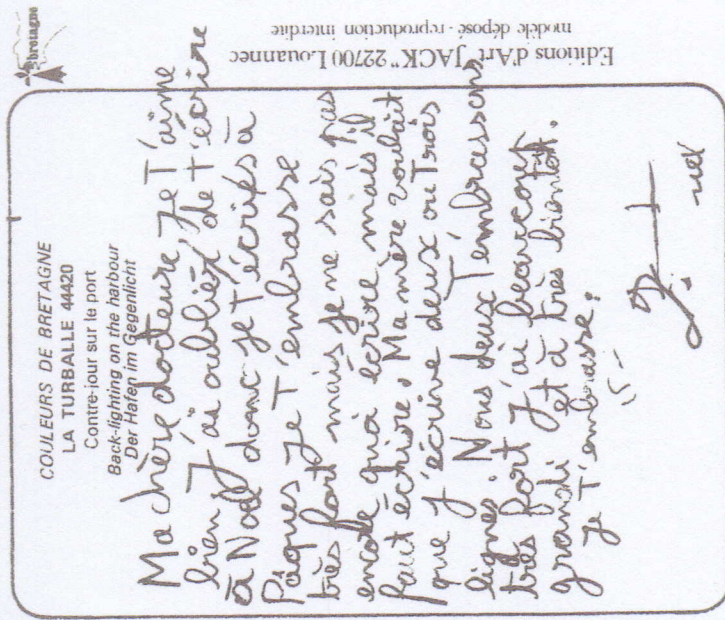 COULEURS DE BRETAGNE
LA TURBALLE 44420
Contre-jour sur le port
Back-lighting on the harbour
Der Hafen im Gegenlicht
Ma chère docteure, Je T'aime
bien J'ai oublièr de T'écrire
à Noël donc je T'écriés à
Pâques Je T'embrasse
très fort mais je ne sais pas
encore quoi écrire mais il
faut écrire. Ma mère voulait
que j'écrive deux ou Trois
lignes. Nous deux T'embrassons
très fort J'ai beaucoup
grandi et à très bientôt.
Je T'embrasse.
bretagne
Editions d'Art "JACK" 22700 Louannec
modèle déposé - reproduction interdite